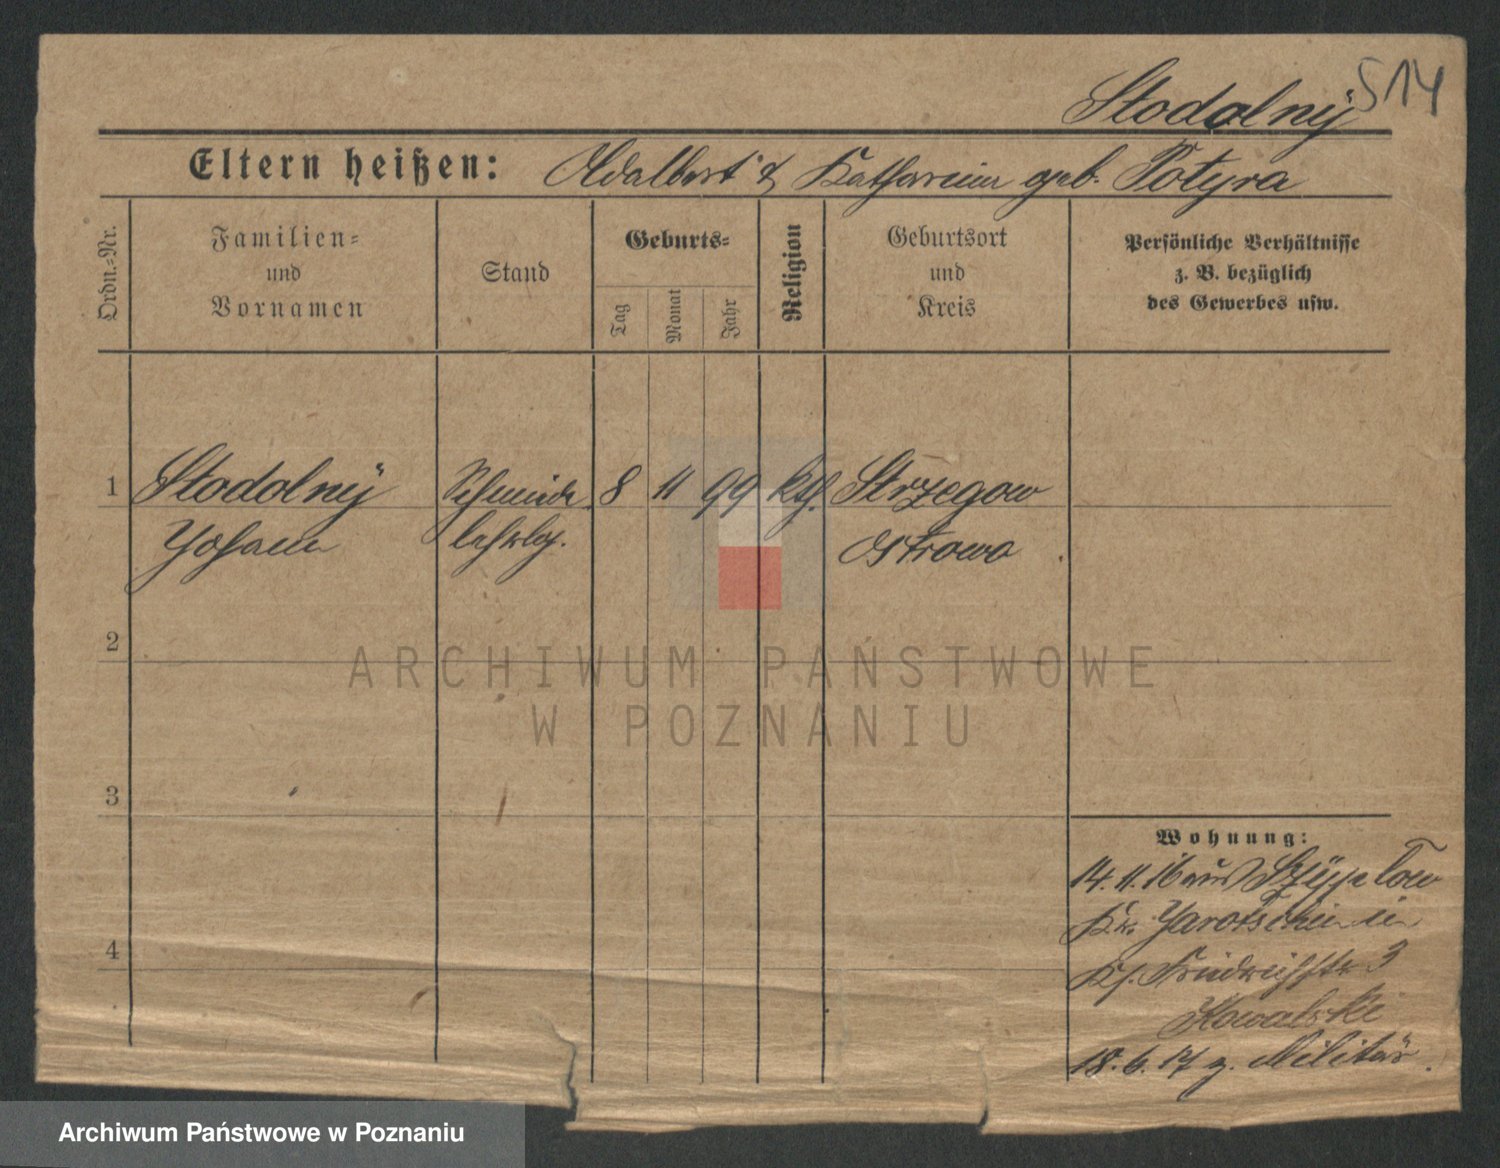 514
Stodolny
Eltern heißen: Adalbert & Katharina geb. Potyra
Ordn.-Nr.
Familien-
und
Vornamen
Stand
Geburts-
Tag
Monat
Jahr
Religion
Geburtsort
und
Kreis
Persönliche Verhältnisse
z. B. bezüglich
des Gewerbes usw.
1 Stodolny Schmiede 8 11 99 kth. Strzegow
Johann lehrlg. Ostrowo
2
3
4
Wohnung:
14.11.16 aus
Kr. Jarotschin in
Friedrichstr 3
Kowalski
18.6.17 z. Militär.
ARCHIWUM PANSTWOWE
W POZNANIU
Archiwum Państwowe w Poznaniu